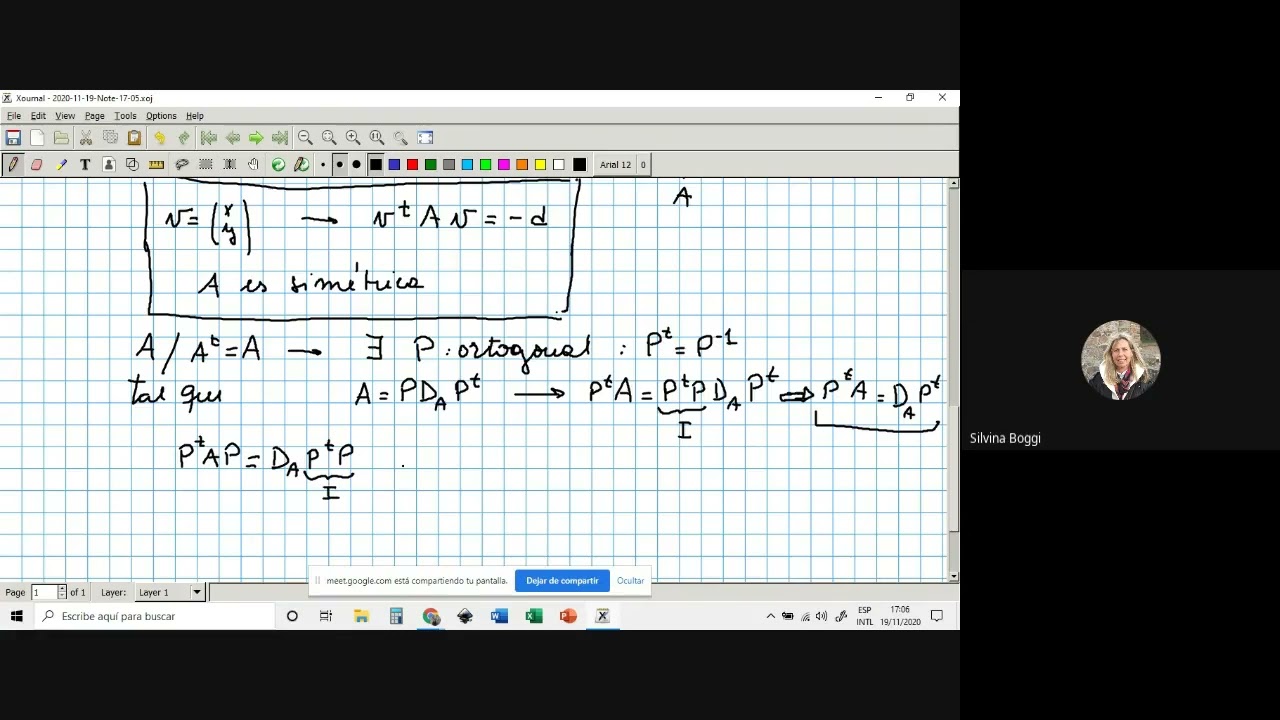 Xournal - 2020-11-19-Note-17-05.xoj
File Edit View Page Tools Options Help
T Arial 12 0
A
v = (x y) → v^t A v = - d
A es simétrica
A / A^t = A → ∃ P : ortogonal : P^t = P^-1
tal que A = P D_A P^t → P^t A = P^t P D_A P^t ⟹ P^t A = D_A P^t
I
P^t A P = D_A P^t P
I
meet.google.com está compartiendo tu pantalla. Dejar de compartir Ocultar
Page 1 of 1 Layer: Layer 1
Escribe aquí para buscar
ESP 17:06
INTL 19/11/2020
Silvina Boggi